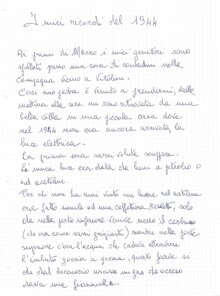 I miei ricordi del 1944
Ai primi di Marzo i miei genitori sono
sfollati presso una casa di contadini nella
campagna vicino a Vitolini.
Così mio padre è venuto a prendermi, dalla
mattina alla sera mi sono ritrovata da una
bella villa in una piccola casa dove
nel 1944 non era ancora arrivata la
luce elettrica.
La prima sera sarei voluta scappare.
La unica luce era data da lumi a petrolio o
ad acetilene.
Per chi non ha mai visto un lume ad acetilene
era fatto simile ad una caffettiera, solo
che nella parte inferiore veniva messo il carburo
(che era come sassi grigiastri) mentre nella parte
superiore c'era l'acqua che cadeva attraverso
l'imbuto goccia a goccia, questo faceva sì
che dal beccuccio usciva un gas che acceso
dava una fiammella.